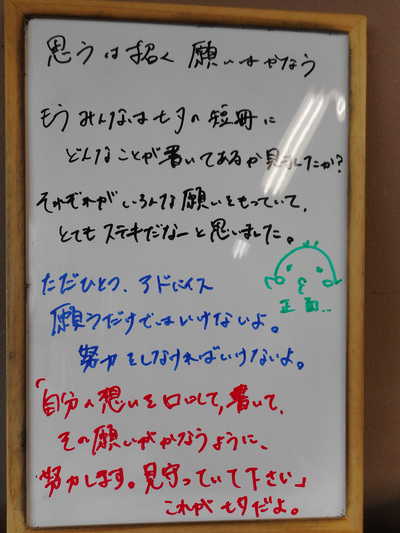 思うは招く 願いはかなう
もうみんなは七夕の短冊に
どんなことが書いてあるか見ましたか?
それぞれがいろんな願いをもっていて、
とてもステキだなーと思いました。
ただひとつ、アドバイス
願うだけではいけないよ。
努力をしなければいけないよ。
正面..
「自分の想いを口にして、書いて、
その願いがかなうように、
努力します。見守っていて下さい」
これが七夕だよ。